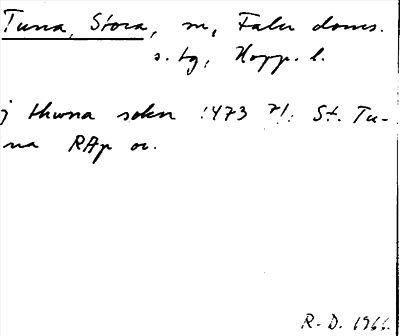 Tuna, Stora, sn, Falu doms.
s. tg, Kopp. l.
j thuna sokn 1473 7/1 St. Tu-
na RAp or.
R. D. 1966.